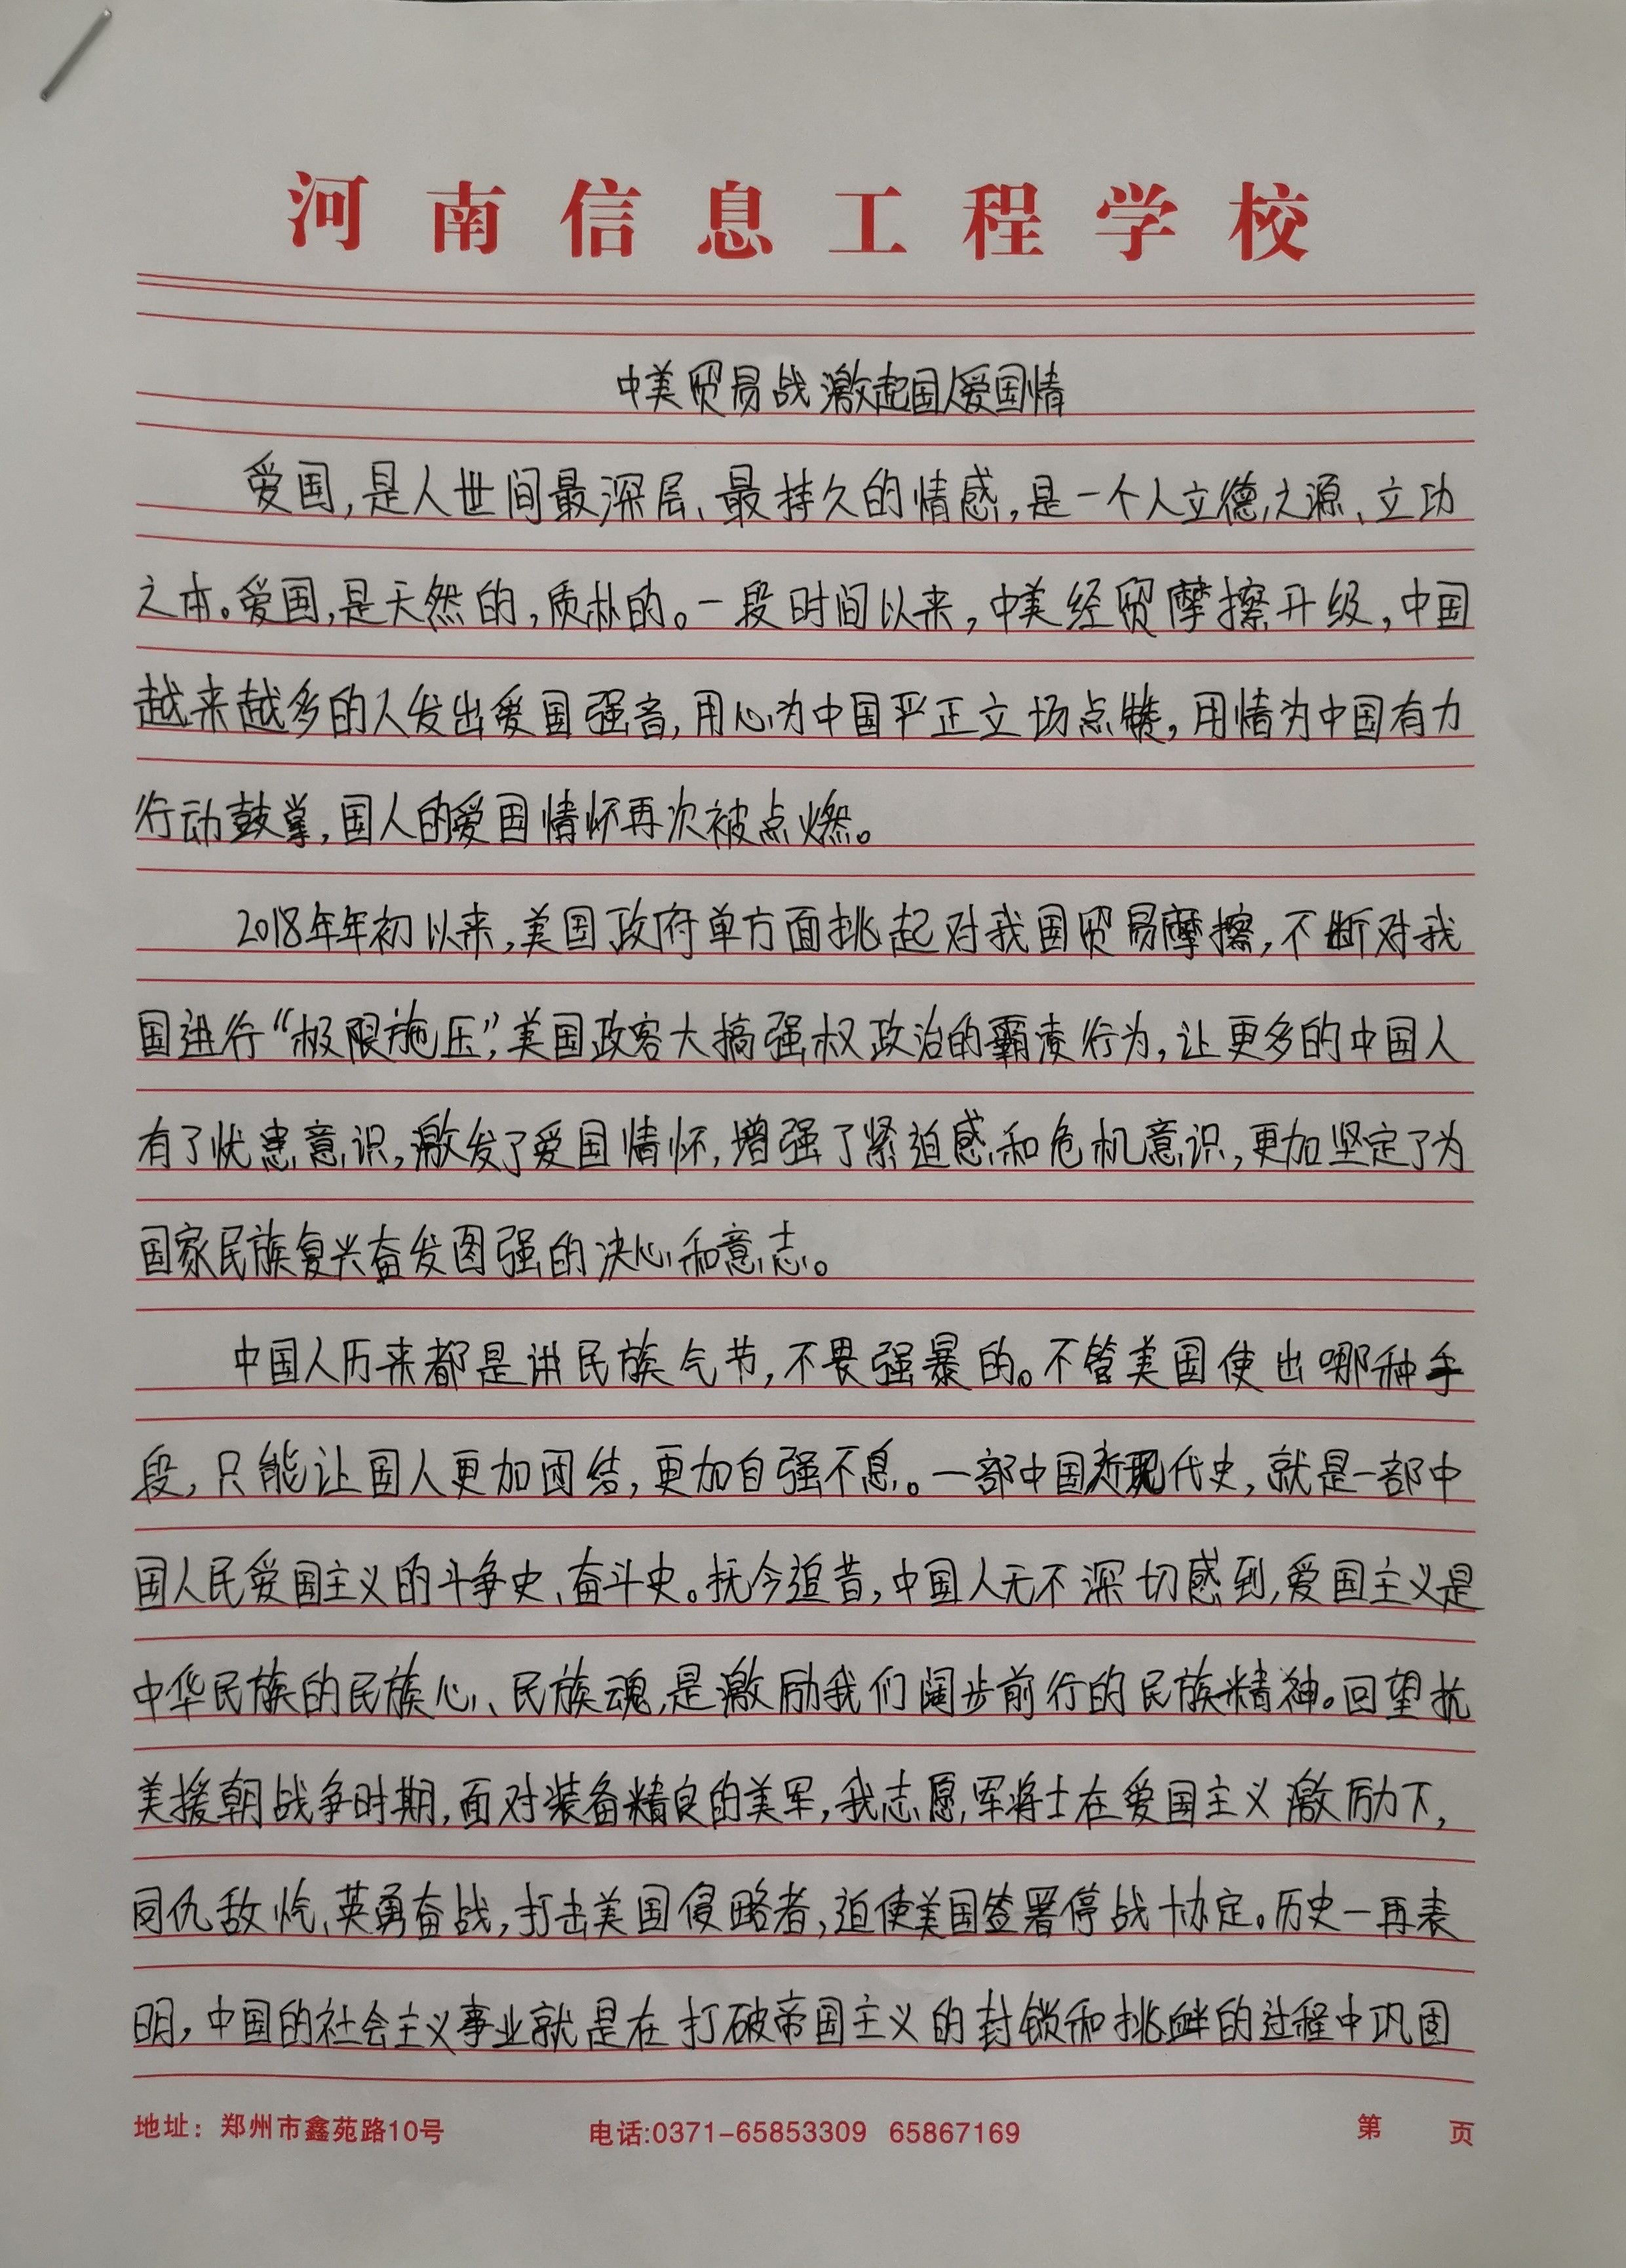 河南信息工程学校
中美贸易战激起国人爱国情
爱国,是人世间最深层、最持久的情感,是一个人立德之源、立功
之本。爱国,是天然的,质朴的。一段时间以来,中美经贸摩擦升级,中国
越来越多的人发出爱国强音,用心为中国严正立场点赞,用情为中国有力
行动鼓掌,国人的爱国情怀再次被点燃。
2018年年初以来,美国政府单方面挑起对我国贸易摩擦,不断对我
国进行“极限施压”,美国政客大搞强权政治的霸凌行为,让更多的中国人
有了忧患意识,激发了爱国情怀,增强了紧迫感和危机意识,更加坚定了为
国家民族复兴奋发图强的决心和意志。
中国人历来都是讲民族气节,不畏强暴的。不管美国使出哪种手
段,只能让国人更加团结,更加自强不息。一部中国近现代史,就是一部中
国人民爱国主义的斗争史、奋斗史。抚今追昔,中国人无不深切感到,爱国主义是
中华民族的民族心、民族魂,是激励我们阔步前行的民族精神。回望抗
美援朝战争时期,面对装备精良的美军,我志愿军将士在爱国主义激励下,
同仇敌忾、英勇奋战,打击美国侵略者,迫使美国签署停战协定。历史一再表
明,中国的社会主义事业就是在打破帝国主义的封锁和挑衅的过程中巩固
地址：郑州市鑫苑路10号 电话:0371-65853309 65867169 第 页